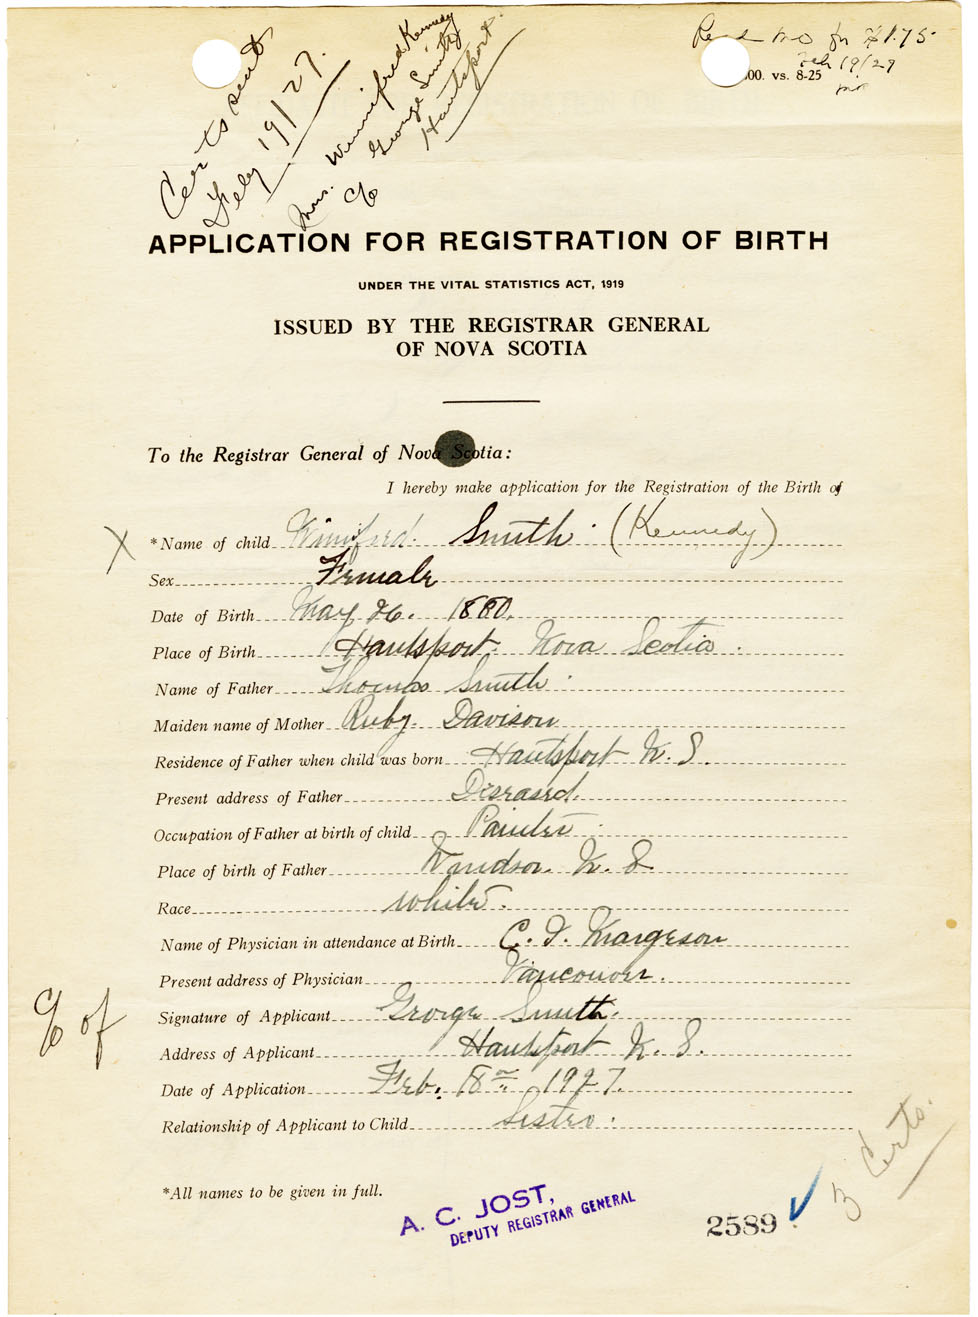 Certs sent
Feby 19/27.
Mrs. Winnifred Kennedy
c/o George Smith
Hantsport.
Recd MO for $1.75
Feb 19/27
00. vs. 8-25
APPLICATION FOR REGISTRATION OF BIRTH
UNDER THE VITAL STATISTICS ACT, 1919
ISSUED BY THE REGISTRAR GENERAL
OF NOVA SCOTIA
To the Registrar General of Nova Scotia:
I hereby make application for the Registration of the Birth of
X *Name of child Winnifred. Smith. (Kennedy)
Sex Female
Date of Birth May 26. 1880.
Place of Birth Hantsport. Nova Scotia.
Name of Father Thomas Smith.
Maiden name of Mother Ruby. Davison
Residence of Father when child was born Hantsport N. S.
Present address of Father Diseased.
Occupation of Father at birth of child Painter.
Place of birth of Father Windsor. N. S
Race white.
Name of Physician in attendance at Birth C. I. Margeson
Present address of Physician Vancouver.
c/o of Signature of Applicant George Smith.
Address of Applicant Hantsport N. S.
Date of Application Feb. 18 1927.
Relationship of Applicant to Child Sister.
3 Certs.
*All names to be given in full.
A. C. JOST,
DEPUTY REGISTRAR GENERAL
2589